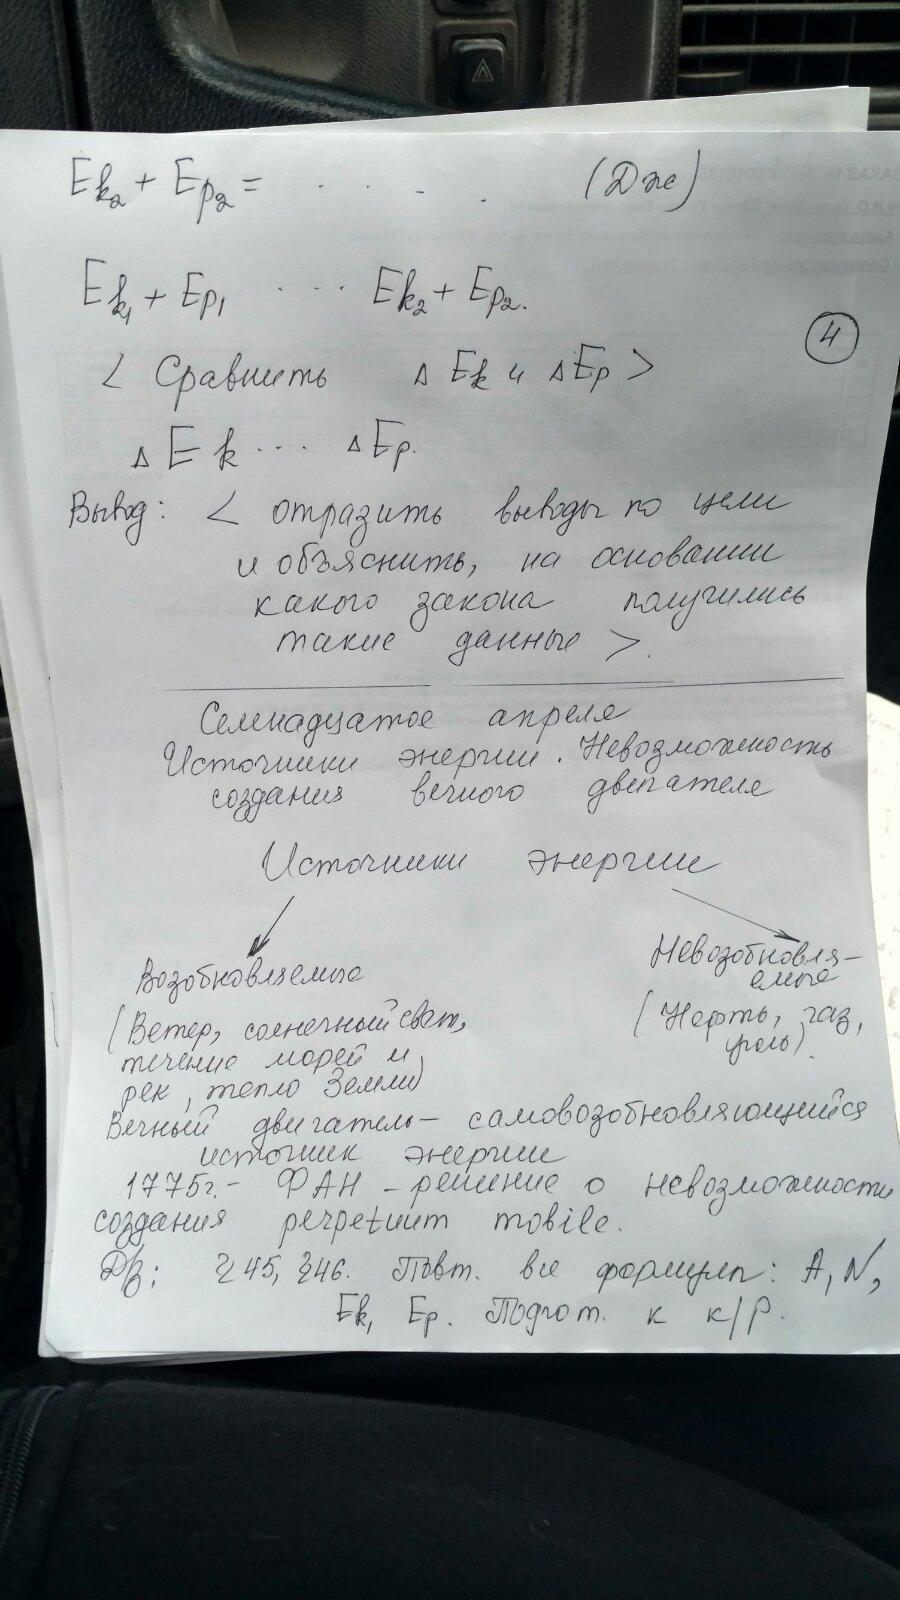 Ek₂ + Ep₂ = . . . . (Дж)
Ek₁ + Ep₁ . . . Ek₂ + Ep₂.
4
< Сравнить Δ Ek и ΔEp >
Δ Ek ... ΔEp.
Вывод: < отразить выводы по цели
и объяснить, на основании
какого закона получились
такие данные >.
Семнадцатое апреля
Источники энергии. Невозможность
создания вечного двигателя
Источники энергии
Возобновляемые
(Ветер, солнечный свет,
течение морей и
рек, тепло Земли)
Невозобновля-
емые
(Нефть, газ,
уголь).
Вечный двигатель - самовозобновляющийся
источник энергии
1775г. - ФАН - решение о невозможности
создания perpetuum mobile.
Дз: §45, §46. Повт. все формулы: A, N,
Ek, Ep. Подгот. к к/р.